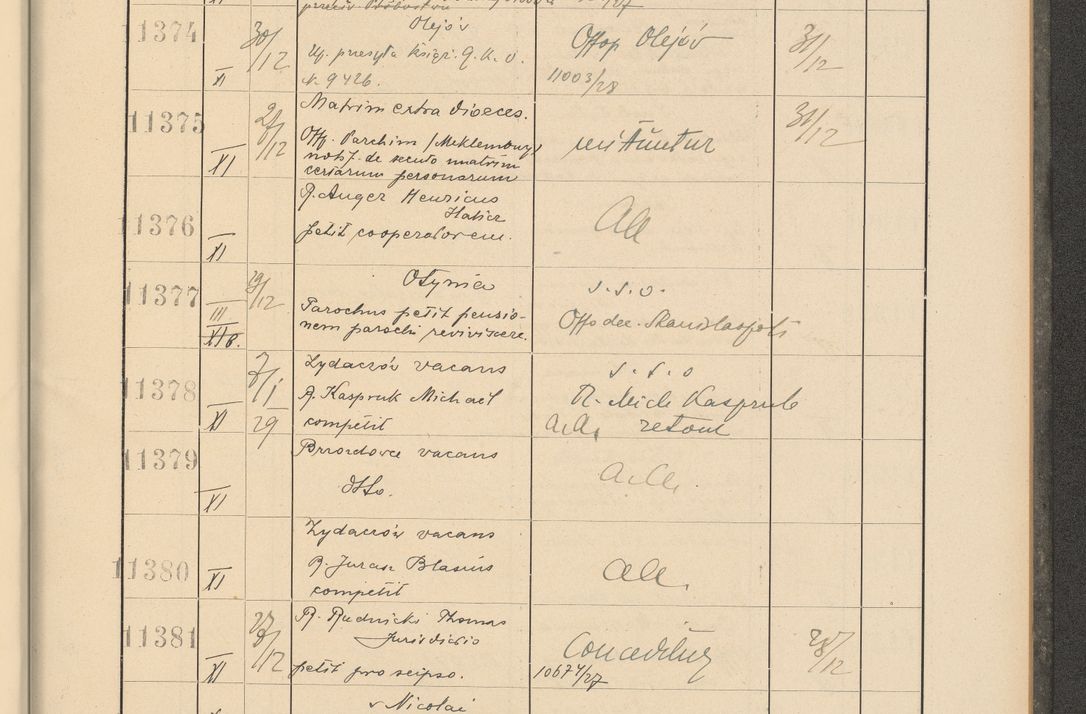 11374
30/12
XI
Olejów
Urz. przesyła księgi. G. K. o.
N. 9426.
Offop Olejów
11003/28
31/12
11375
XI
Matrim extra dioeces.
Off. Parchim / Meklemburg/
notif. de secuto matrim
certarum personarum
mittuntur
31/12
11376
XI
R. Auger Henricus
Halicz
petit cooperatorem.
aa
11377
29/12
III
XI b.
Otynia
Parochus petit pensio-
nem parochi reviviscere.
s. s. o.
Offo dec. Stanislaopoli
11378
7/1
29
XI
Zydaczów vacans
R. Kaspruk Michael
competit
s. s. o
R. Mich Kaspruk
a.a.
11379
XI
vacans
dtto.
a.a.
11380
XI
Zydaczów vacans
R. Juraz Blasius
competit
aa.
11381
XI
R. Rudnicki Thomas
Jurisdictio
petit pro seipso.
Conceditur
10674/27
28/12
v Nicolai